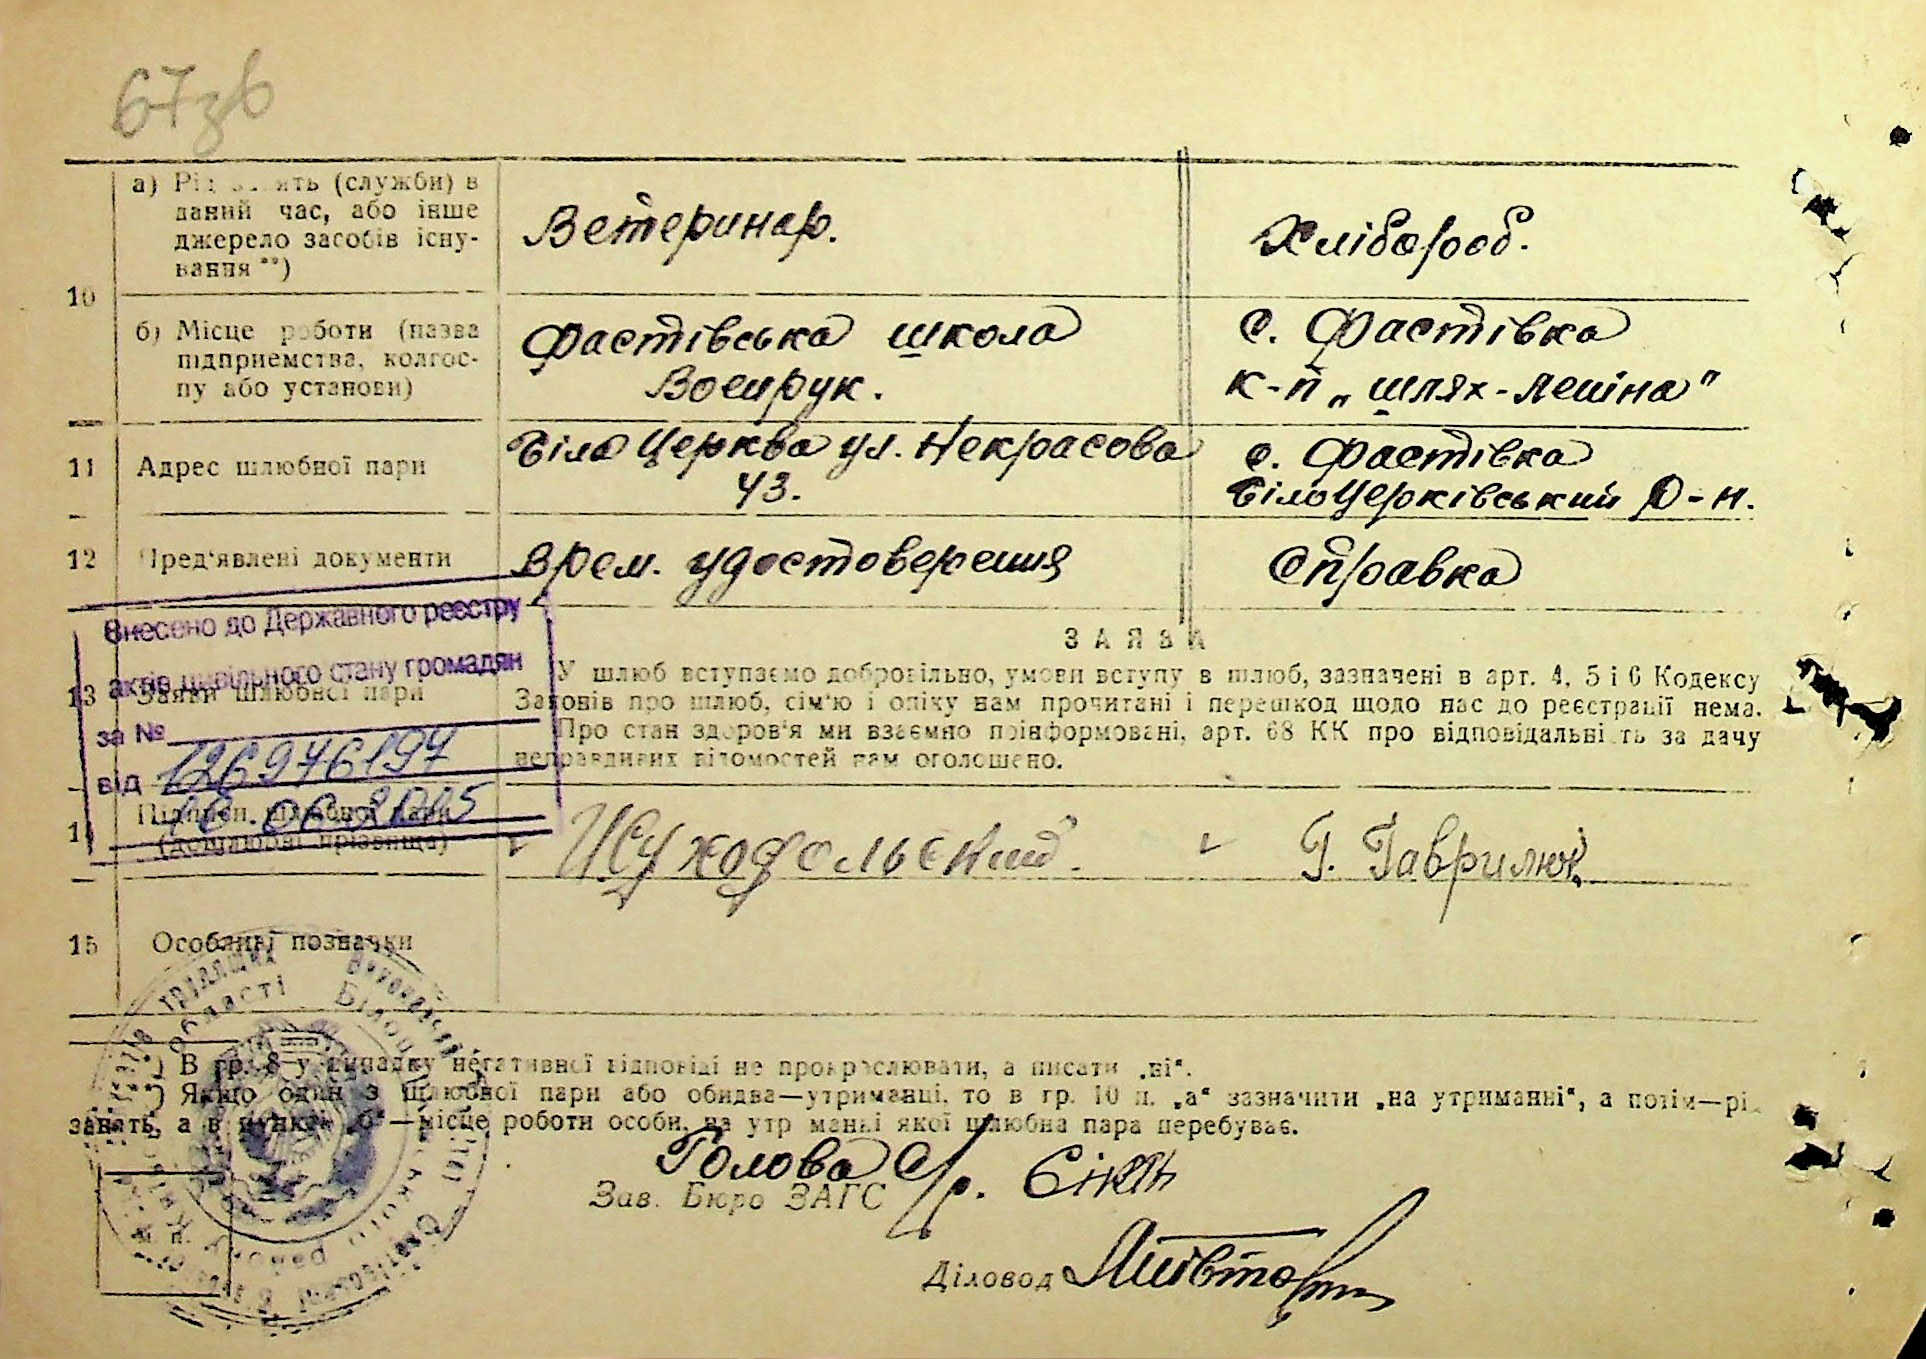 67зв
а) Рід занять (служби) в
даний час, або інше
джерело засобів існу-
вання **)
Ветеринар.
Хлібороб.
10
б) Місце роботи (назва
підприємства, колгос-
пу або установи)
Фастівська школа
Воєнрук.
с. Фастівка
к-п „шлях-Леніна"
11
Адрес шлюбної пари
Біла Церква ул. Некрасова
43.
с. Фастівка
БілоЦерківський Р-н.
12
Пред'явлені документи
Врем. удостоверения
Справка
Внесено до Державного реєстру
актів цивільного стану громадян
за №
126976197
від
13
Заяви шлюбної пари
ЗАЯВА
У шлюб вступаємо добровільно, умови вступу в шлюб, зазначені в арт. 4, 5 і 6 Кодексу
Законів про шлюб, сім'ю і опіку нам прочитані і перешкод щодо нас до реєстрації нема.
Про стан здоров'я ми взаємно поінформовані, арт. 68 КК про відповідальність за дачу
неправдивих відомостей нам оголошено.
Підписи шлюбної пари
(дошлюбні прізвища)
Суходольский.
Г. Гаврилюк
15
Особливі позначки
*) В гр. 8 у випадку негативної відповіді не прокреслювати, а писати „ні".
**) Якщо один з шлюбної пари або обидва—утриманці, то в гр. 10 п. „а" зазначити „на утриманні", а потім—рід
занять, а в пункті „б"—місце роботи особи, на утриманні якої шлюбна пара перебуває.
Голова с/р.
Зав. Бюро ЗАГС
Діловод
м. п.